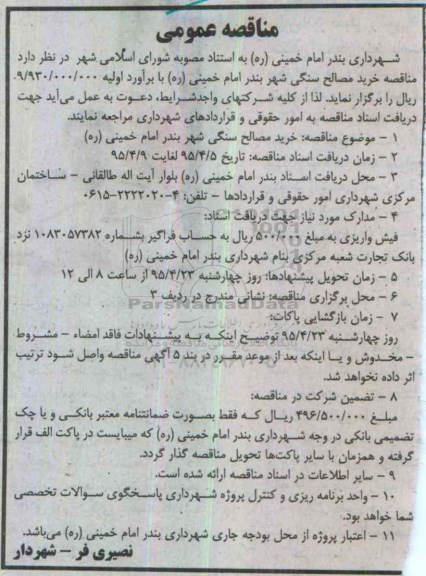 مناقصه عمومی
شـهرداری بندر امام خمینی (ره) به استناد مصوبه شورای اسلامی شهر در نظر دارد
مناقصه خرید مصالح سنگی شهر بندر امام خمینی (ره) با برآورد اولیه ۹/۹۳۰/۰۰۰/۰۰۰.
ریال را برگزار نماید. لذا از کلیه شـرکتهای واجدشـرایط، دعـوت به عمل می‌آید جهت
دریافت اسناد مناقصه به امور حقوقی و قراردادهای شهرداری مراجعه نمایند.
۱ - موضوع مناقصه: خرید مصالح سنگی شهر بندر امام خمینی (ره)
۲ - زمان دریافت اسناد مناقصه: تاریخ ۹۵/۴/۵ لغایت ۹۵/۴/۹
۳ - محل دریافت اسـناد بندر امام خمینی (ره) بلوار آیت اله طالقانی - سـاختمان
مرکزی شهرداری امور حقوقی و قراردادها - تلفن: ۴-۲۲۲۲۰۲۰-۰۶۱۵
۴ - مدارک مورد نیاز جهت دریافت اسناد:
فیش واریزی به مبلغ ۵۰۰/۰۰۰ ریال به حساب فراگیر بشـماره ۱۰۸۳۰۵۷۳۸۲ نزد
بانک تجارت شعبه مرکزی بنام شهرداری بندر امام خمینی (ره)
۵ - زمان تحویل پیشنهادها: روز چهارشنبه ۹۵/۴/۲۳ از ساعت ۸ الی ۱۲
۶ - محل برگزاری مناقصه: نشانی مندرج در ردیف ۳
ParsNamadData
۷ - زمان بازگشایی پاکات:
روز چهارشـنبه ۹۵/۴/۲۳ توضیـح اینکـه بـه پیشـنهادات فاقد امضاء - مشـروط
- مخـدوش و یـا اینکه بعد از موعد مقـرر در بند ۵ آگهی مناقصه واصل شـود ترتیب
اثر داده نخواهد شد.
۸ - تضمین شرکت در مناقصه:
مبلـغ ۴۹۶/۵۰۰/۰۰۰ ریـال کـه فقط بصورت ضمانتنامه معتبر بانکـی و یا چک
تضمیمی بانکی در وجه شهرداری بندر امام خمینی (ره) که میبایست در پاکت الف قرار
گرفته و همزمان با سایر پاکت‌ها تحویل مناقصه گذار گردد.
۹ - سایر اطلاعات در اسناد مناقصه ارائه شده است.
۱۰ - واحد برنامه ریزی و کنترل پروژه شهـرداری پاسـخگوی سـوالات تخصصی
شما خواهد بود.
۱۱ - اعتبار پروژه از محل بودجه جاری شهرداری بندر امام خمینی (ره) می‌باشد.
نصیری فر - شهردار